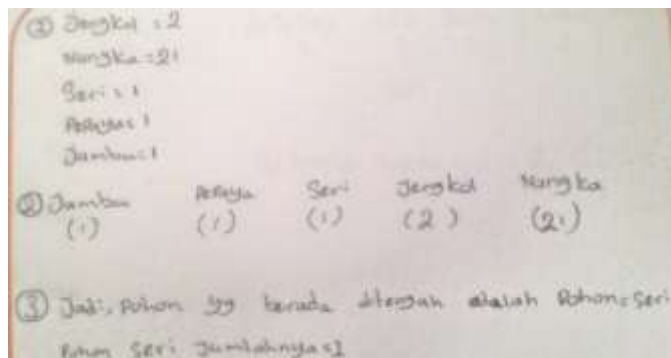 ① Jengkol = 2
Nangka = 21
Seri = 1
Pepaya = 1
Jambu = 1
② Jambu Pepaya Seri Jengkol Nangka
(1) (1) (1) (2) (21)
③ Jadi, Pohon yg berada ditengah adalah Pohon = Seri
Pohon Seri Jumlahnya = 1